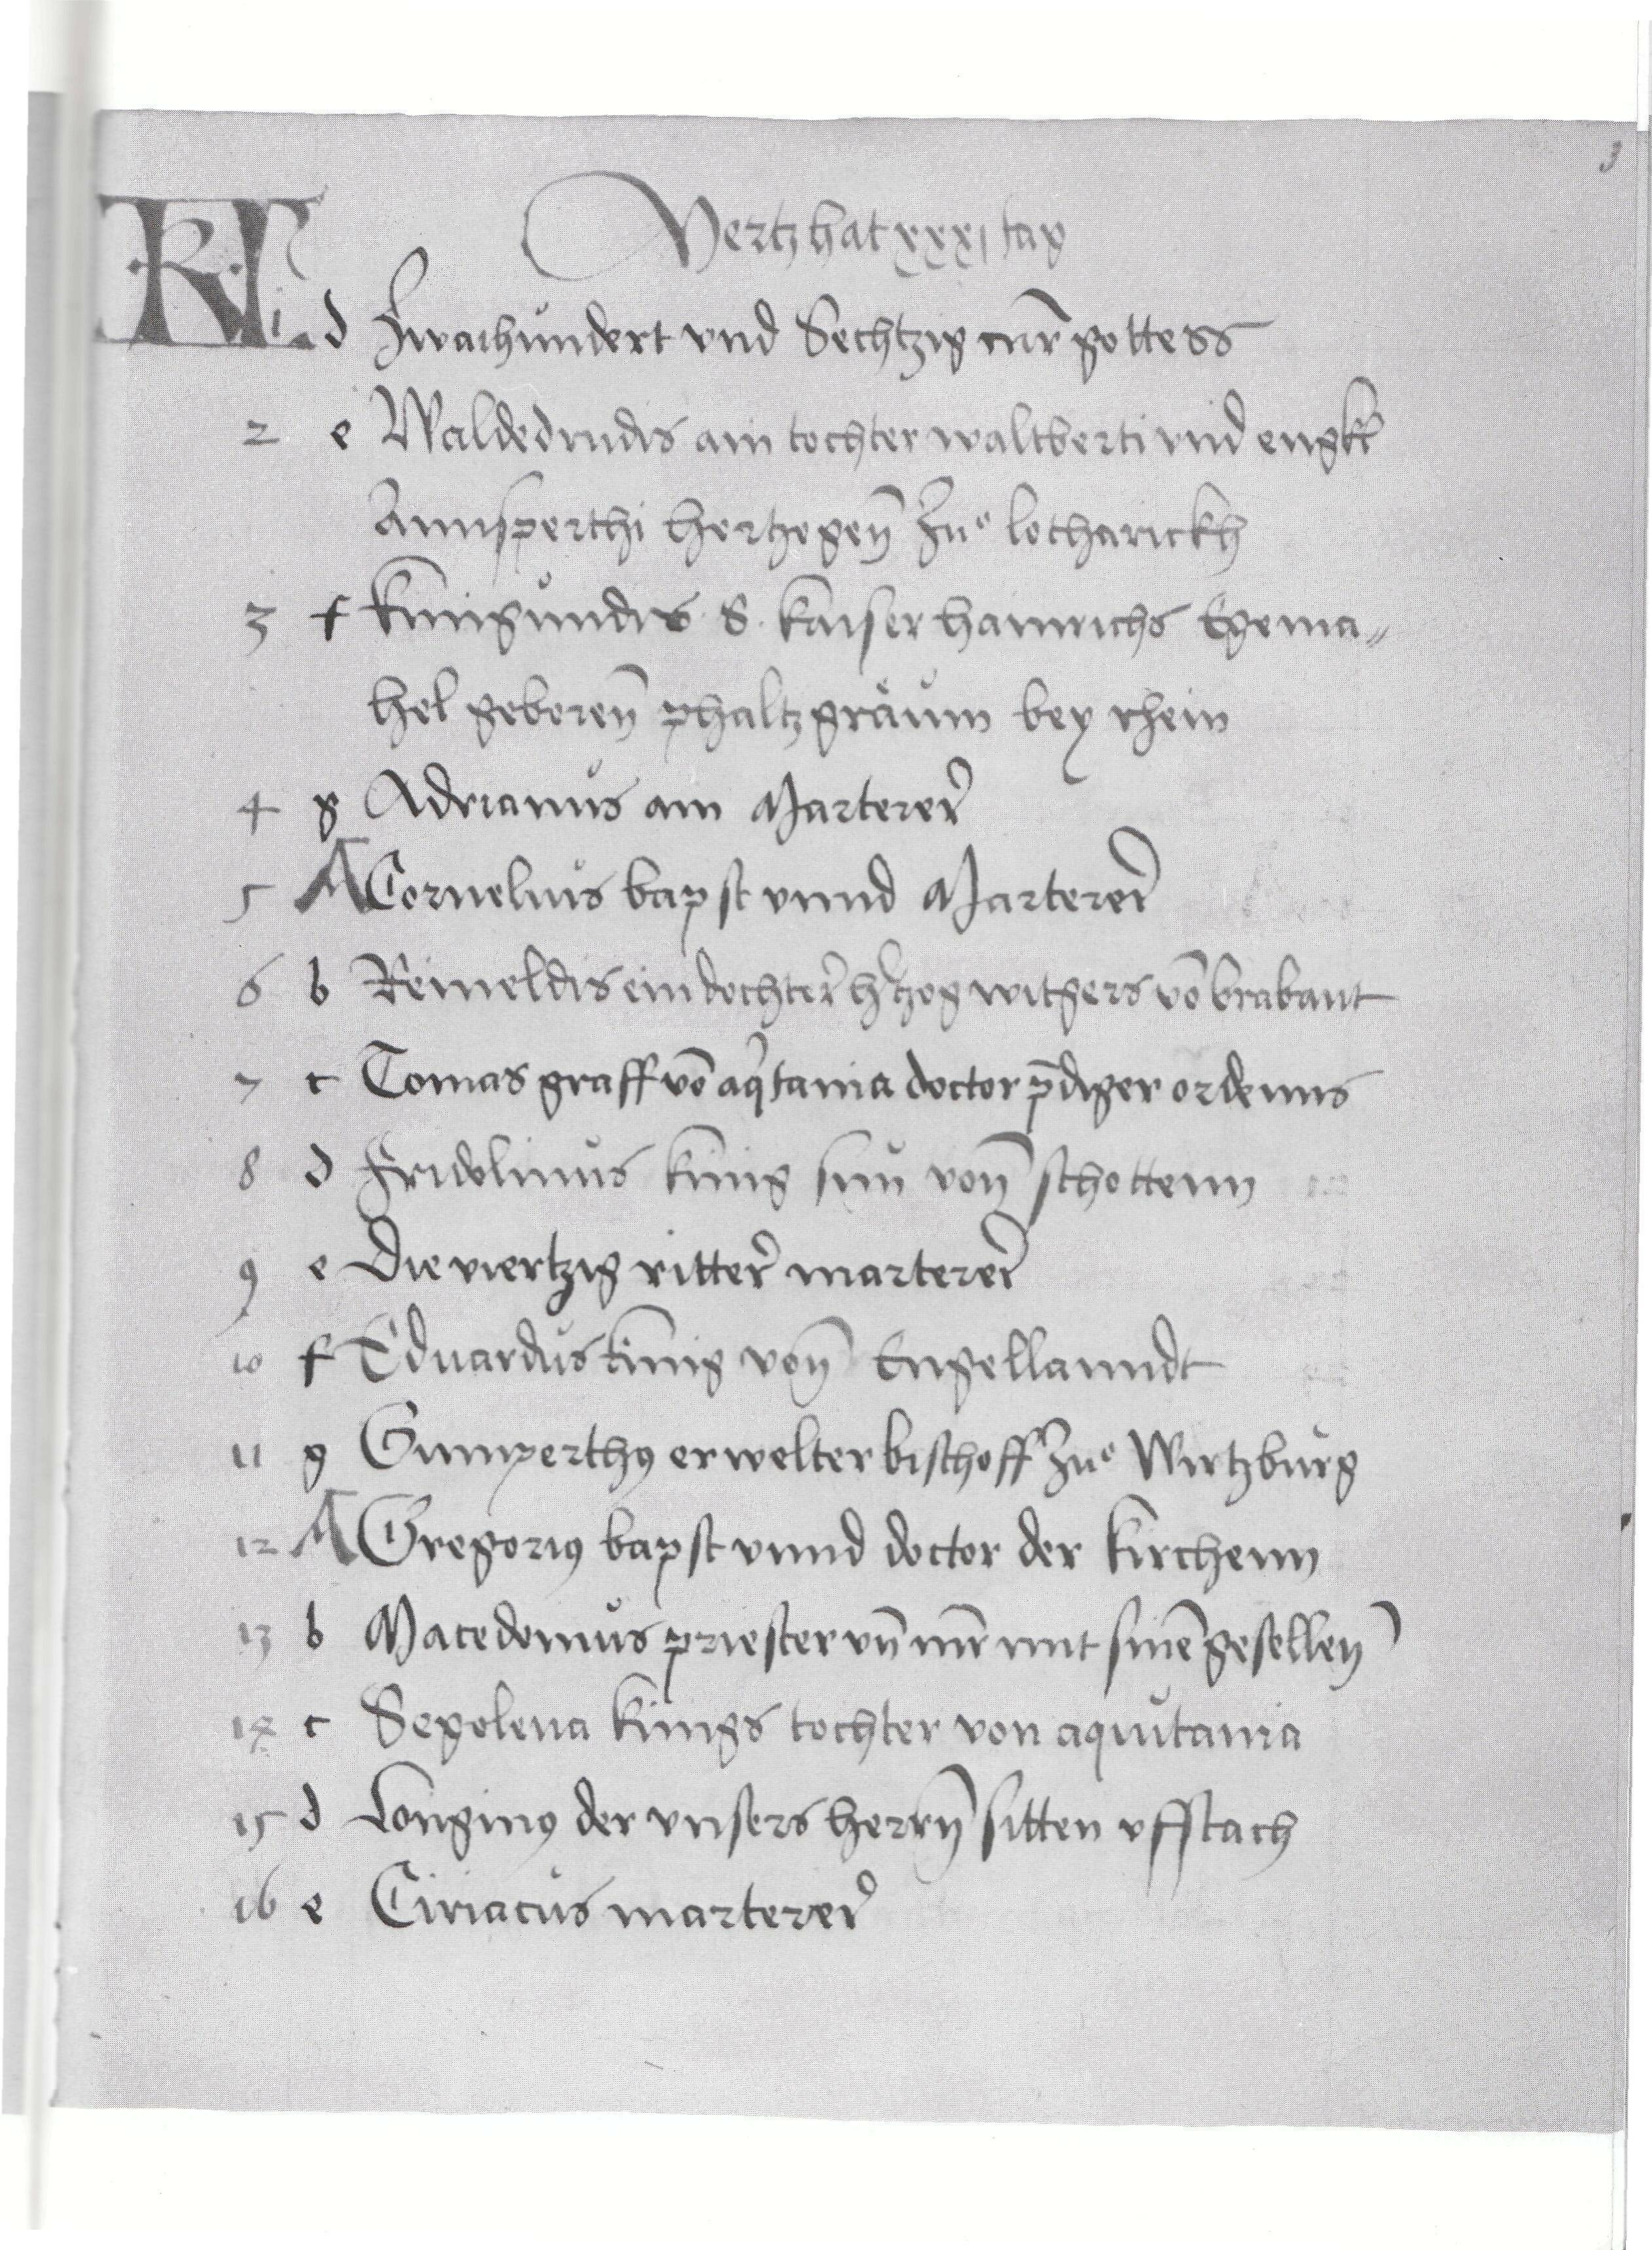 3
Mertz hat xxxi tag
KL 1 d Zwaihůndert vnd Sechtzig mr̄ gottess
2 e Waldedrudis ain tochter waltberti vnd
Annsperthi hertzogen̄ Zůe lotharickh
3 f kunigůndis S. kaiser hainrichs Egema„
hel geboren̄ phaltzgräuin bey rhein
4 g Adrianůs ain Marterer
5 A Cornelius bapst vnnd Marterer
6 b Reineldis ein dochter h̄tzog witgers vō brabant
7 c Tomas graff vō aq̊tania doctor p̄diger ordenns
8 d Fridolinůs künig sun von̄ schottenn
9 e Die viertzig ritter marterer
10 f Edvardůs künig von̄ Engellanndt
11 g Gumperthꝰ erwelter bischoff Zůe Wirtzbůrg
12 A Gregoriꝰ bapst vnnd doctor der kirchenn
13 b Macedonius priester vn̄ mr̄ mit sinē gesellen̄
14 c Segolena künigs tochter von aquitania
15 d Longinꝰ der vnsers herrn̄ sitten vffstach
16 e Ciriacůs marterer